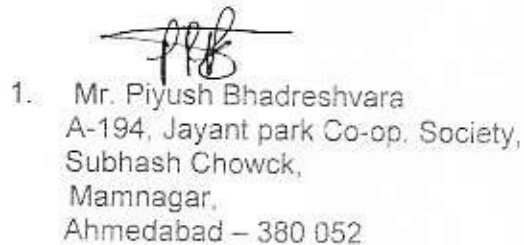 1. Mr. Piyush Bhadreshvara
A-194, Jayant park Co-op. Society,
Subhash Chowck,
Mamnagar,
Ahmedabad – 380 052